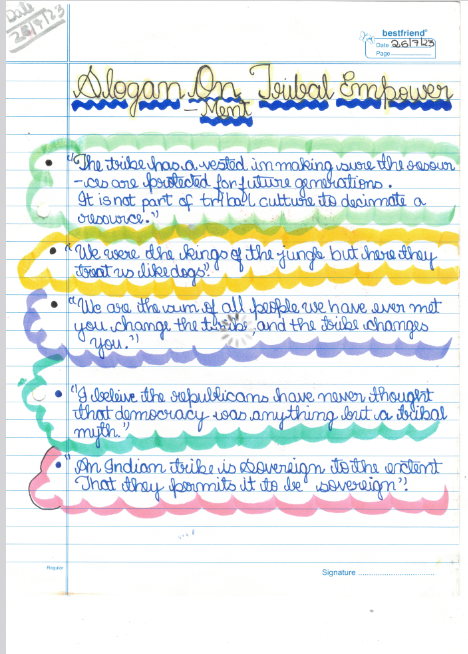 Date
26/7/23
bestfriend
Date 26/7/23
Page
Slogan On Tribal Empower
-Ment
"The tribe has a vested in making sure the resour
-ces are protected for future generations.
It is not part of tribal culture to decimate a
resource."
"We were the kings of the jungle but here they
treat us like dogs."
"We are the sum of all people we have ever met
you change the tribe and the tribe changes
you."
"I beleive the republicans have never thought
that democracy was anything but a tribal
myth."
"An Indian tribe is sovereign to the extent
That they permits it to be sovereign"!
Signature